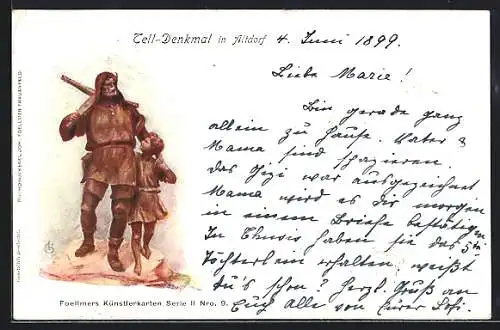 Tell-Denkmal in Altdorf
4. Juni 1899.
Liebe Marie!
Bin gerade ganz
allein zu Hause. Vater &
Mama sind spazieren.
das Gizi war ausgezeichnet
Mama wird es dir morgen
in einem Briefe bestätigen
In Thusis haben sie das 5te
Töchterlein erhalten, weißt
du's schon? Herzl. Gruß an
Euch alle von Eurer Sofi.
Foellmers Künstlerkarten Serie II Nro. 9.